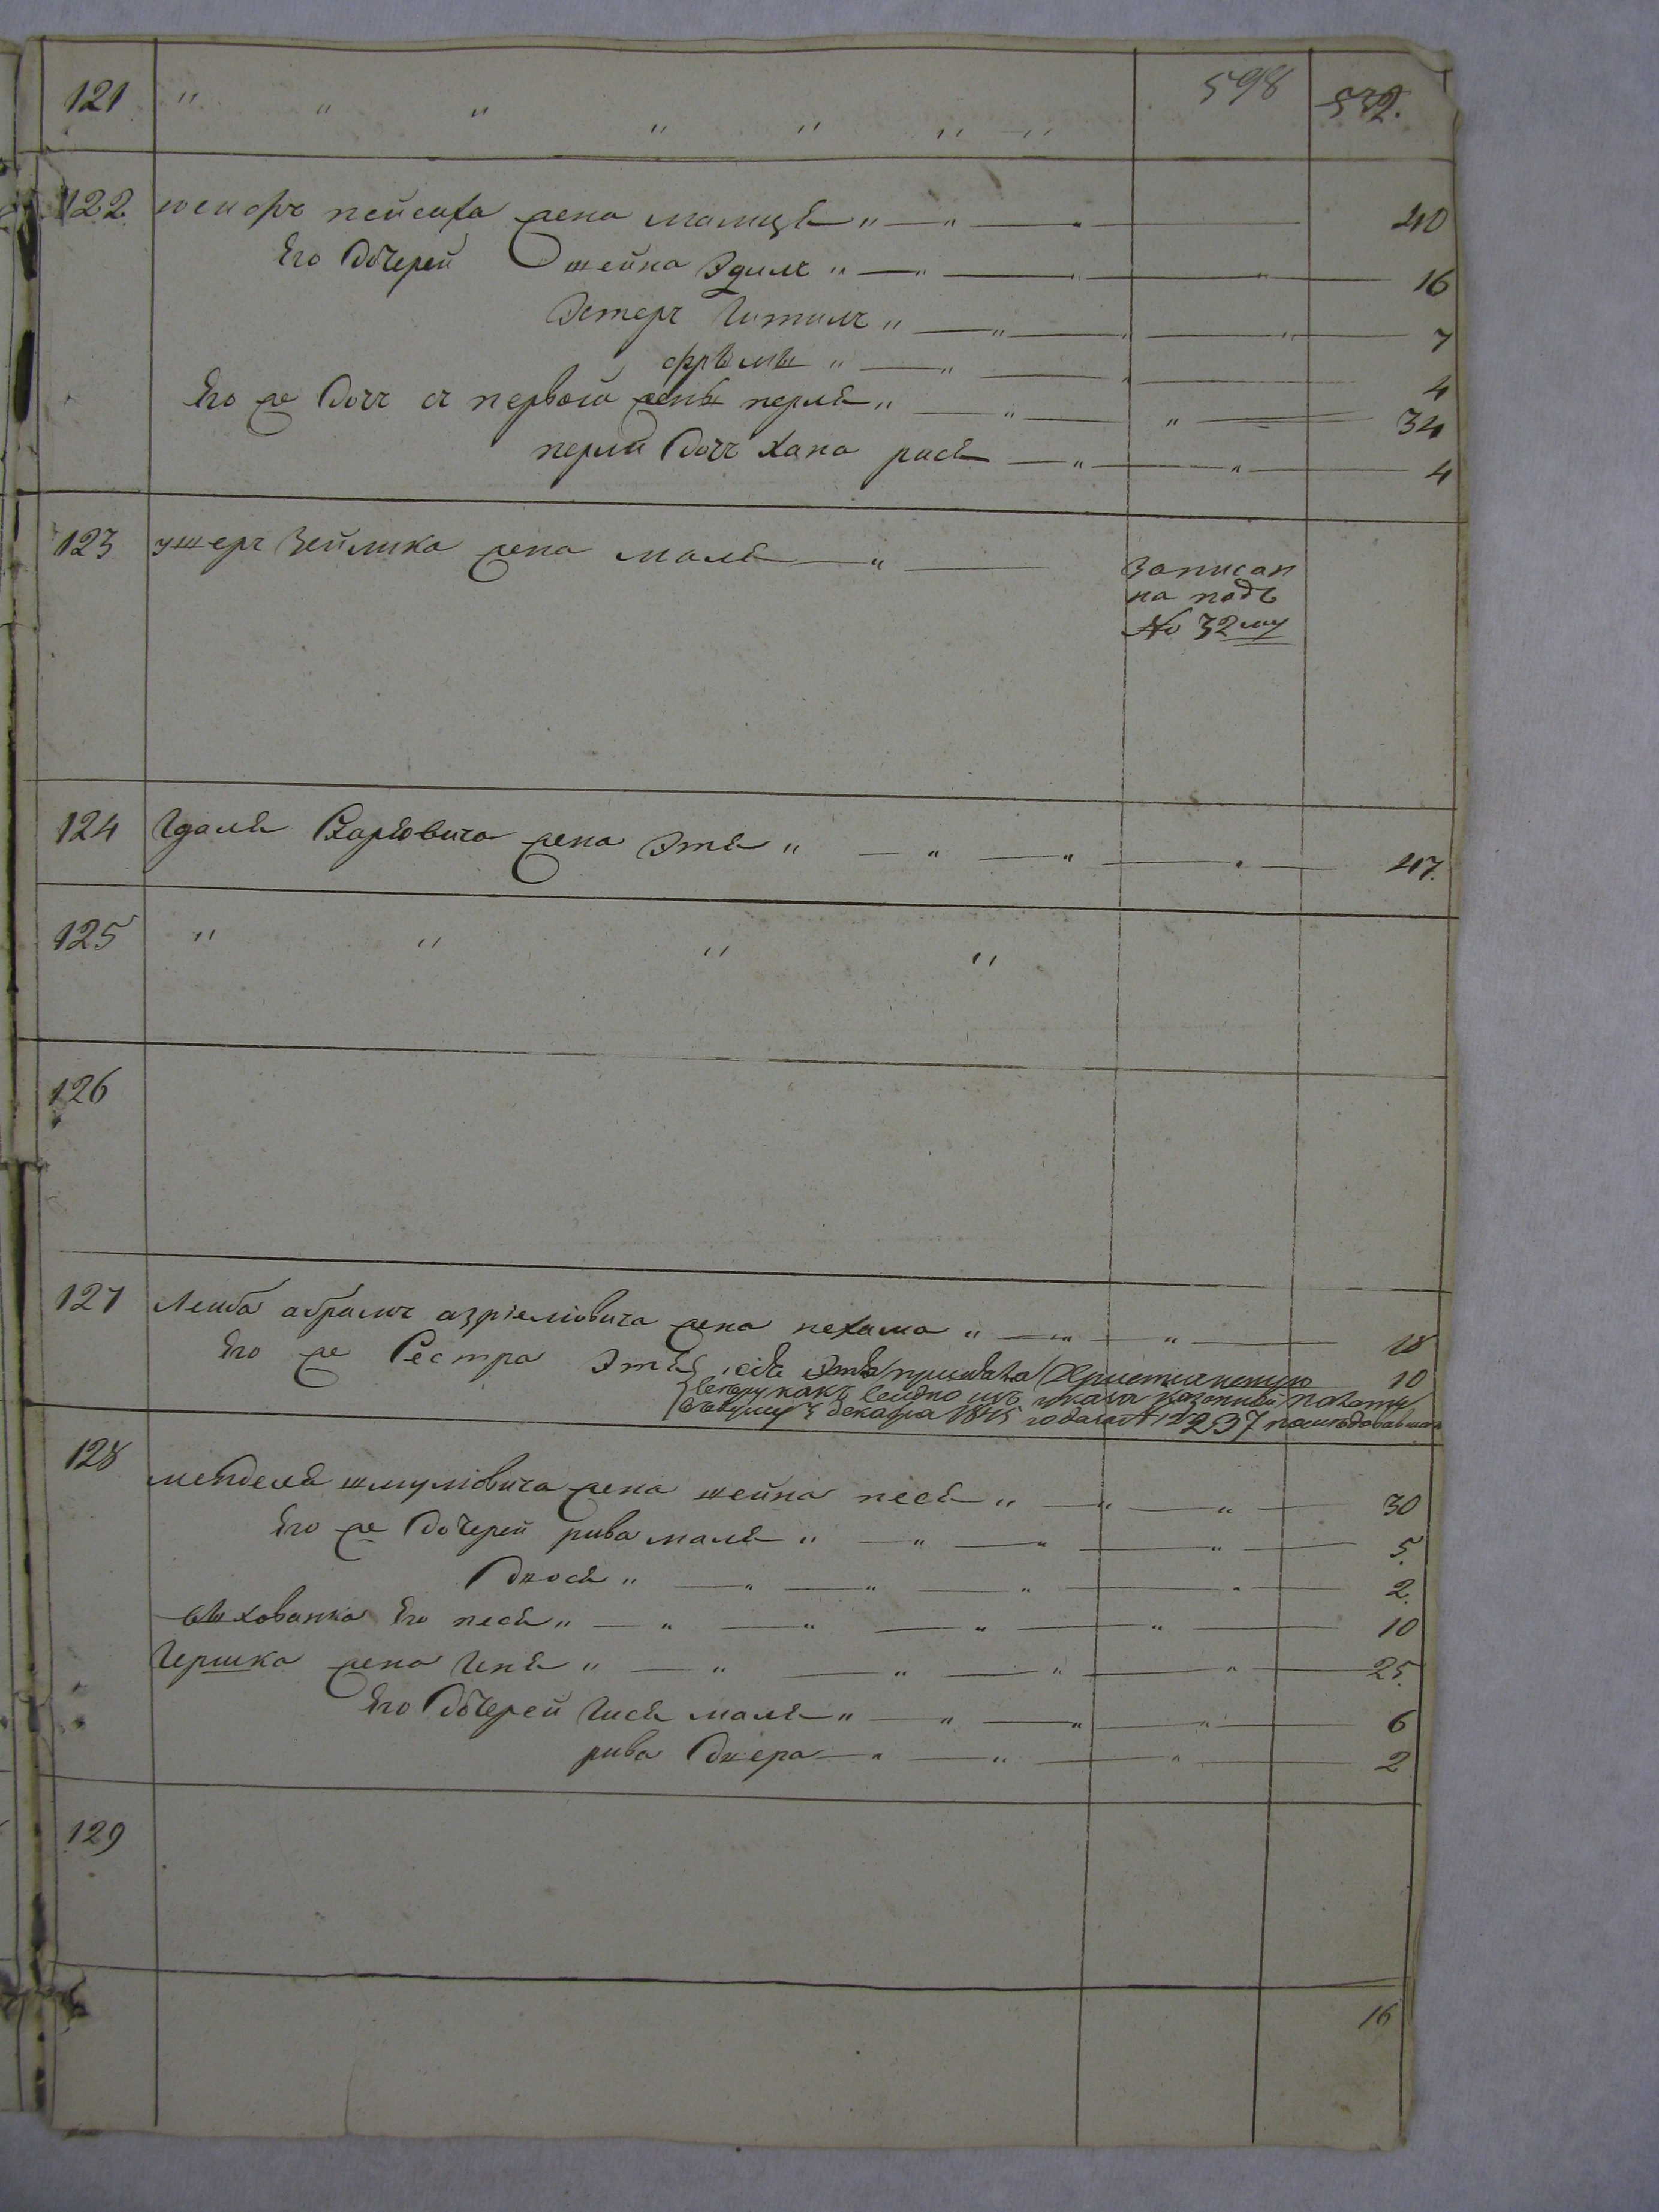 598 532.
121 " " " " " " "
122 иосифъ пейсаха жена малця " — " — 40
Его дочерей шейна Эдиль " — " — " — 16
Эстеръ Гитиль " — " — " — 7
фрымы " — " — 4
Его же дочъ съ первой жены перля " — " — " — 34
перли дочъ хана рися — " — " — 4
123 ушеръ Зейлика жена маля — " —
Записан
на подъ
№ 32му
124 Гдаля жена Этя " — " — " — " — 47.
125 " " " "
126
127 Лейба абрамъ азріеліовича жена нехама " — " — " — 18
Его же Сестра Этя сія Этя приняла Христианскую 10
веру какъ видно изъ указа казенной палаты
декабря 1845 года за № 12237 последовавшаго
128 менделя шмуліовича жена шейна песя " — " — " — 30
Его же дочерей рива маля " — " — " — " — 5.
двося " — " — " — " — " — 2.
выхованка Его песя " — " — " — " — " — 10
Гершка жена Геня " — " — " — " — " — 25.
Его дочерей Гися маля " — " — " — " — 6
рива двера — " — " — " — 2
129
16